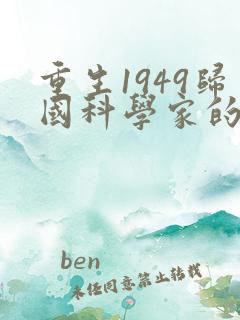 重生1949歸
國科學家的
ben
未任同意禁止转载